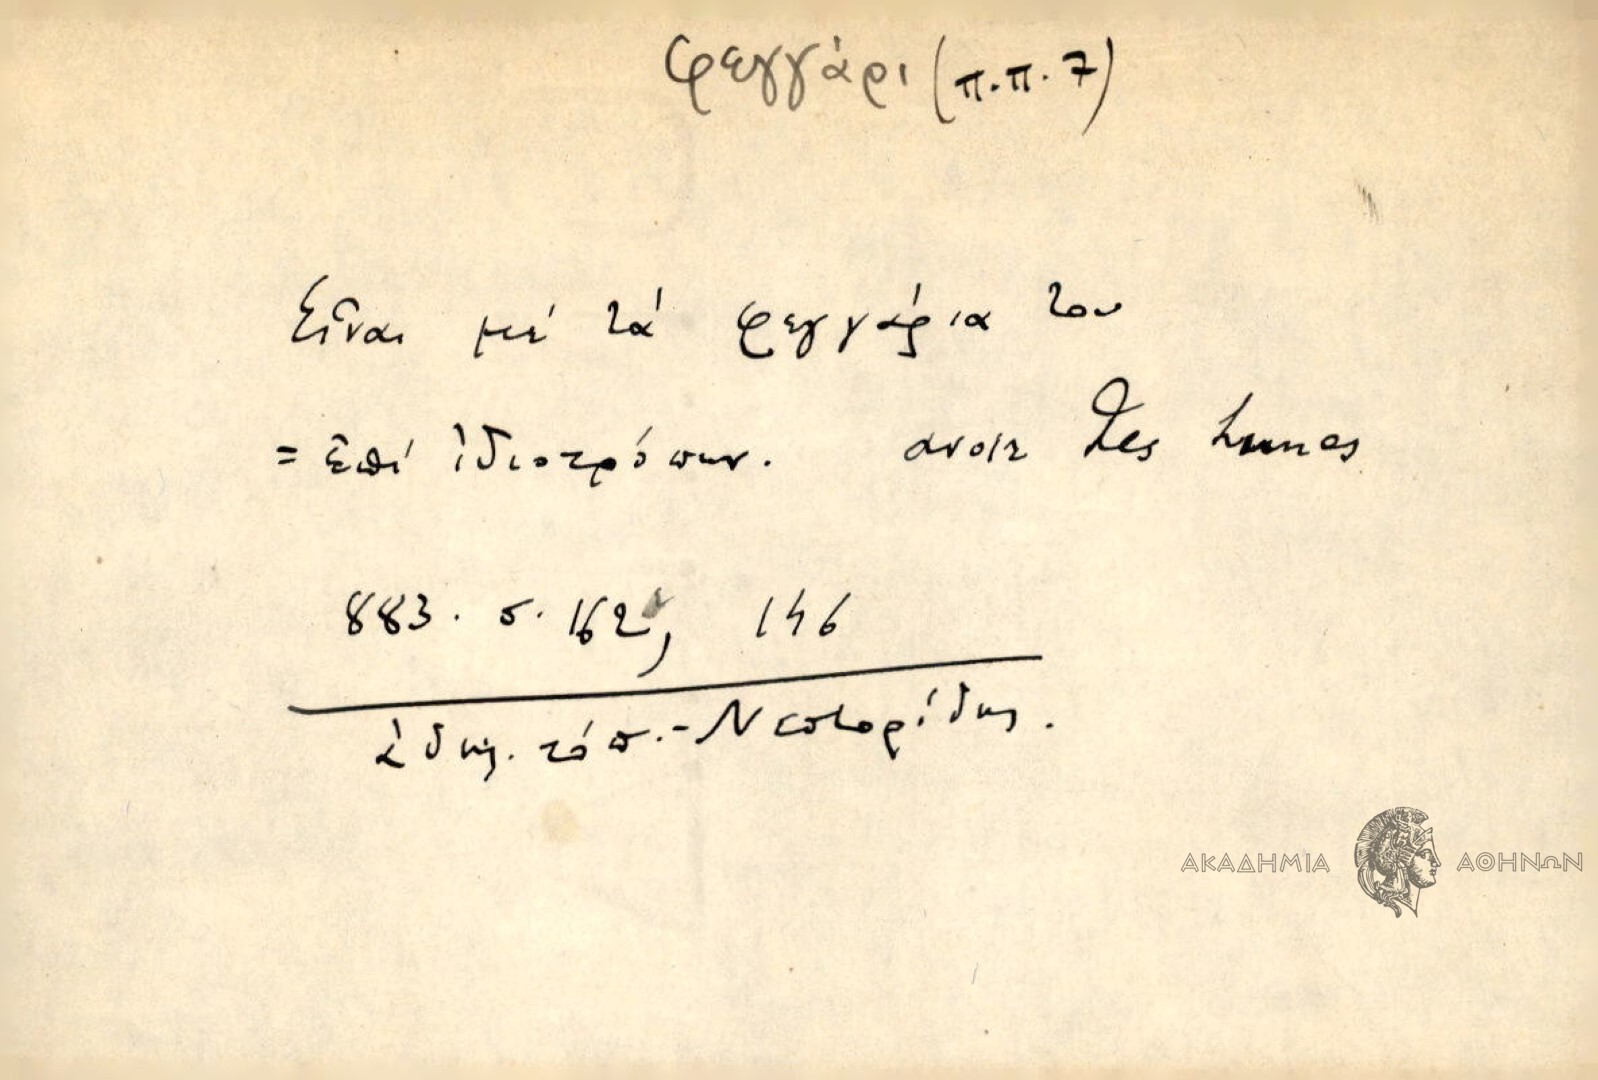 φεγγάρι (π.π. 7)
Εἶναι μέ τά φεγγάρια του
= ἐπί ἰδιοτρόπων. avoir des Lunes
883. σ. 162, 146
ἀδηλ. τόπ. - Νεστορίδης.
ΑΚΑΔΗΜΙΑ ΑΘΗΝΩΝ